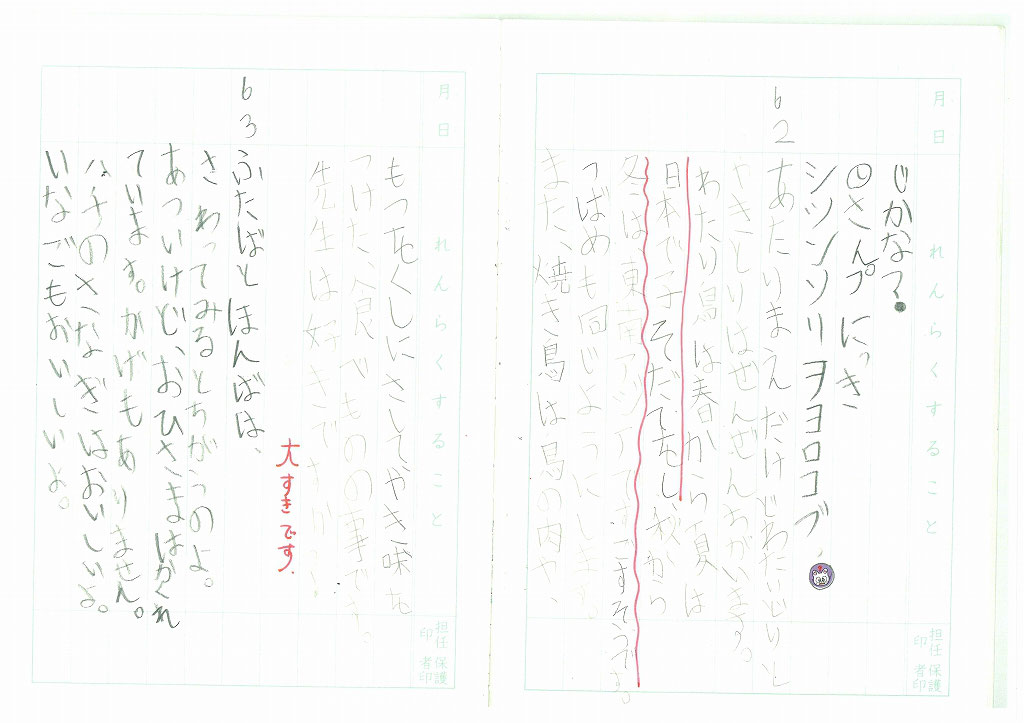 月日 れんらくすること 担任印 保護者印
じかな？
さんプにっき
シツンソリヲヨロコブ
6 2 あたりまえだけどわたりどりと
やきとりはぜんぜんちがいます。
わたり鳥は春から夏は
日本で子そだてをし、秋から
冬は、東南アジアですごすそうです。
つばめも同じようにします。
また、焼き鳥は鳥の肉や、
月日 れんらくすること 担任印 保護者印
もつをくしにさしてやき味を
つけた、食べものの事です。
先生は好きですか？
大すきです.
6 3 ふたばとほんばは、
さわってみるとちがうのよ。
あついけど、おひさまはかくれ
ています。かげもありません。
ハチのさなぎはおいしいよ。
いなごもおいしいよ。